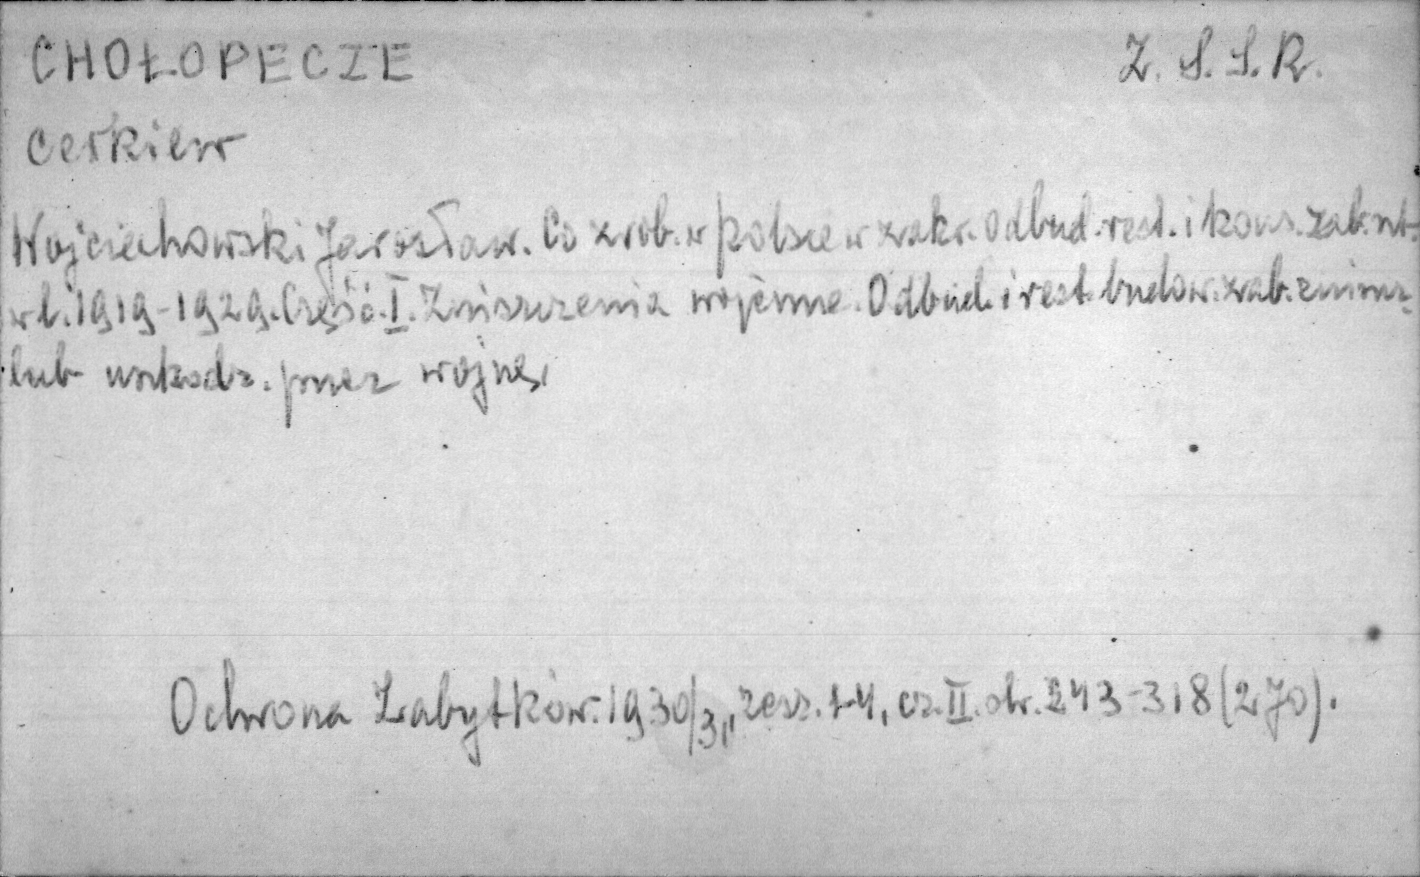 CHOŁOPECZE Z. S. S. R.
Cerkiew
Wojciechowski Jarosław. Co zrob. w Polsce w zakr. odbud. rest. i kons. zab. szt.
w l. 1919-1929. Część I. Zniszczenia wojenne. Odbud. i rest. budow. zab. zniszcz.
lub uszkodz. przez wojnę.
Ochrona Zabytków. 1930/31, zesz. 1-4, cz. II. str. 243-318 (270).